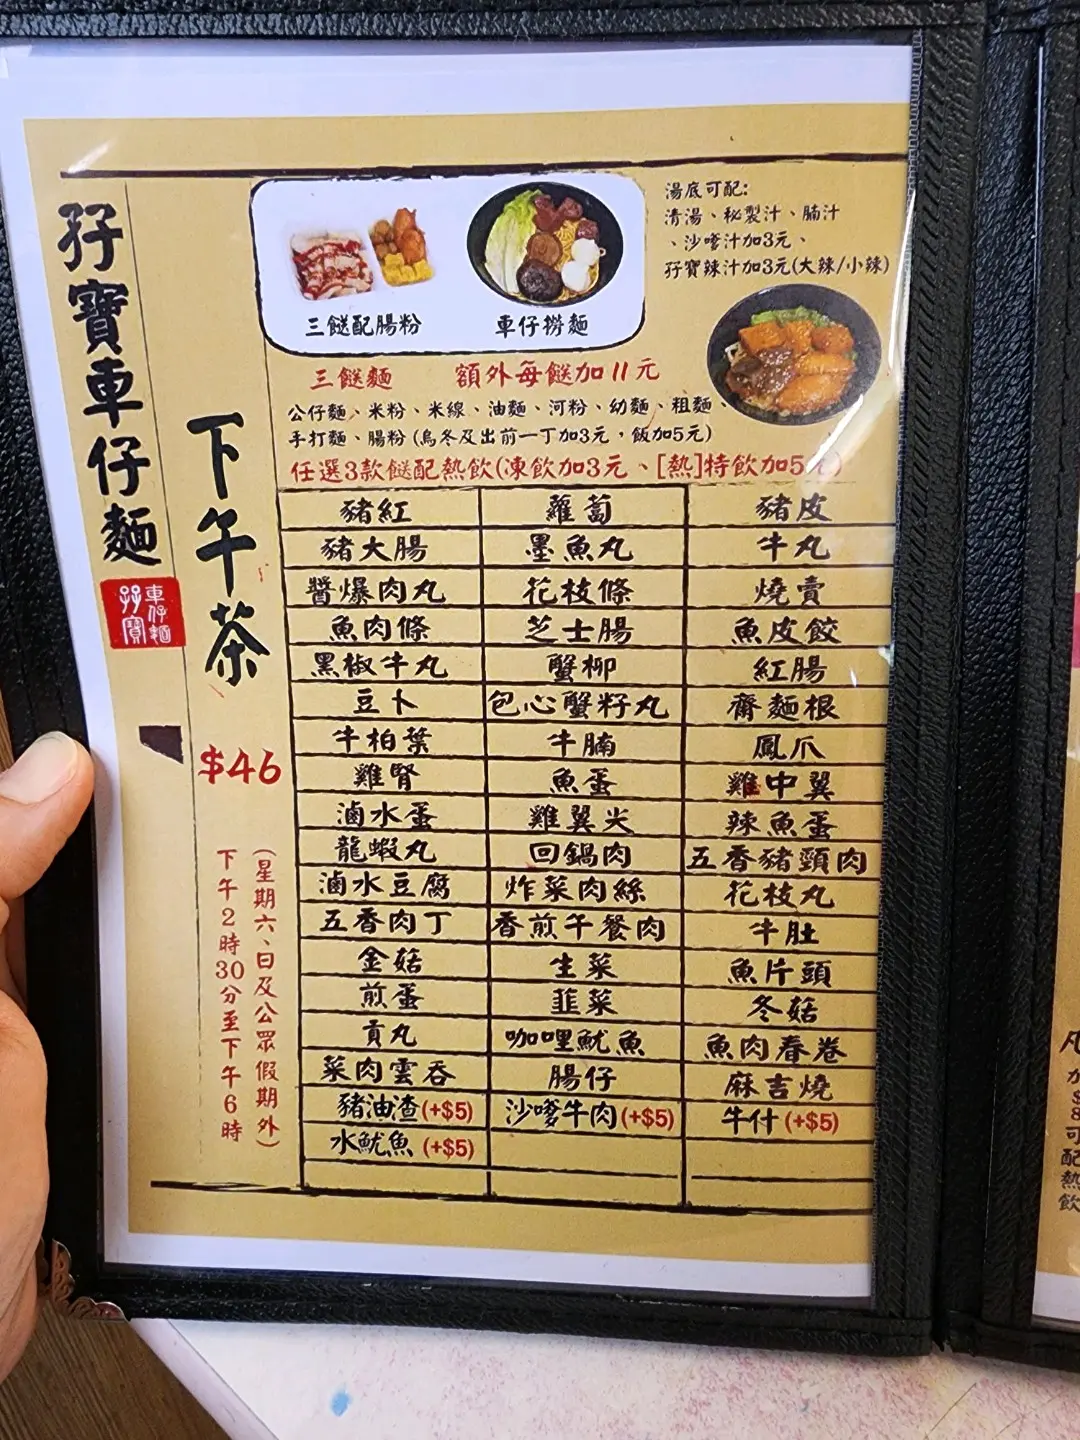 孖寶車仔麵
車仔麵
孖寶
下午茶
$46
(星期六、日及公眾假期外)
下午2時30分至下午6時
三餸配腸粉
車仔撈麵
湯底可配:
清湯、秘製汁、腩汁
、沙嗲汁加3元、
孖寶辣汁加3元(大辣/小辣)
三餸麵 額外每餸加11元
公仔麵、米粉、米線、油麵、河粉、幼麵、粗麵、
手打麵、腸粉 (烏冬及出前一丁加3元，飯加5元)
任選3款餸配熱飲(凍飲加3元、[熱]特飲加5元)
豬紅 蘿蔔 豬皮
豬大腸 墨魚丸 牛丸
醬爆肉丸 花枝條 燒賣
魚肉條 芝士腸 魚皮餃
黑椒牛丸 蟹柳 紅腸
豆卜 包心蟹籽丸 齋麵根
牛柏葉 牛腩 鳳爪
雞腎 魚蛋 雞中翼
滷水蛋 雞翼尖 辣魚蛋
龍蝦丸 回鍋肉 五香豬頸肉
滷水豆腐 炸菜肉絲 花枝丸
五香肉丁 香煎午餐肉 牛肚
金菇 生菜 魚片頭
煎蛋 韮菜 冬菇
貢丸 咖哩魷魚 魚肉春卷
菜肉雲吞 腸仔 麻吉燒
豬油渣(+$5) 沙嗲牛肉(+$5) 牛什(+$5)
水魷魚(+$5)
加
$
8
可
配
熱
飲